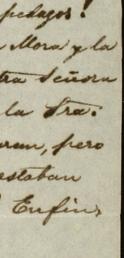 pedazos!
Mora y la
tra Señora
la Sra.
aran, pero
estaban
Enfin,